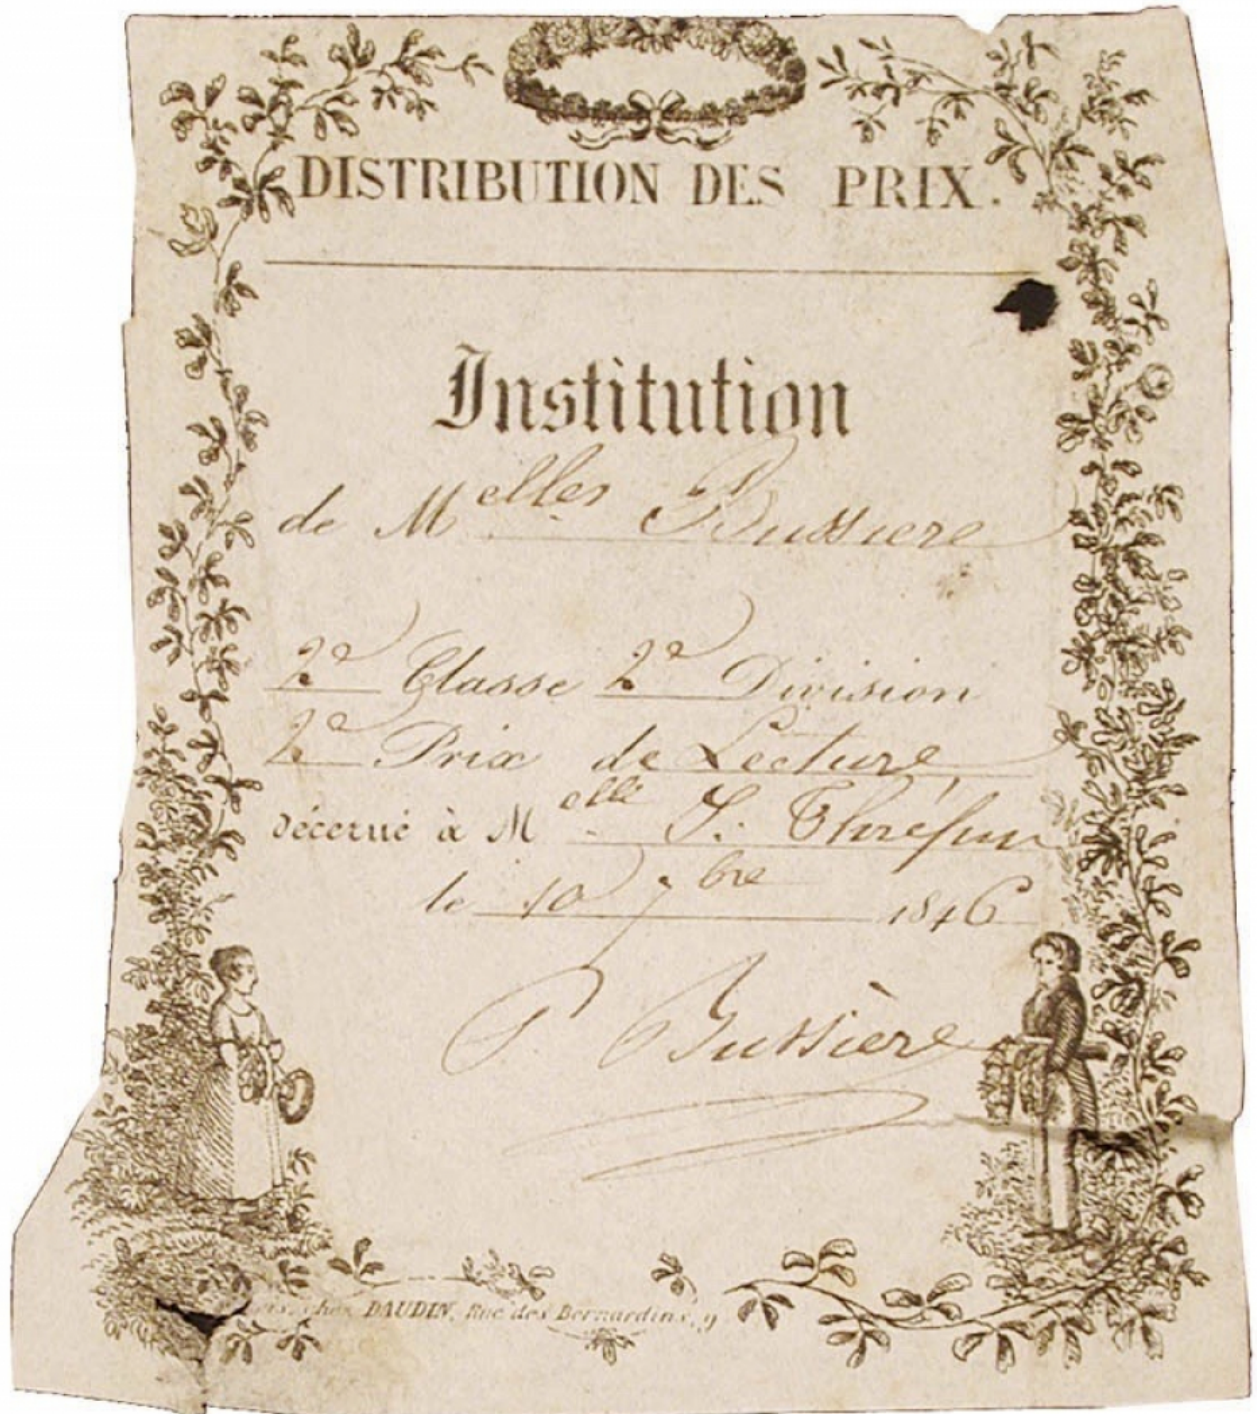 DISTRIBUTION DES PRIX.
Institution
de Melles Bussiere
2e Classe 2e Division
2e Prix de Lecture
décerné à Melle
le 10 7bre 1846
P Bussière
chez DAUDIN, Rue des Bernardins, 9